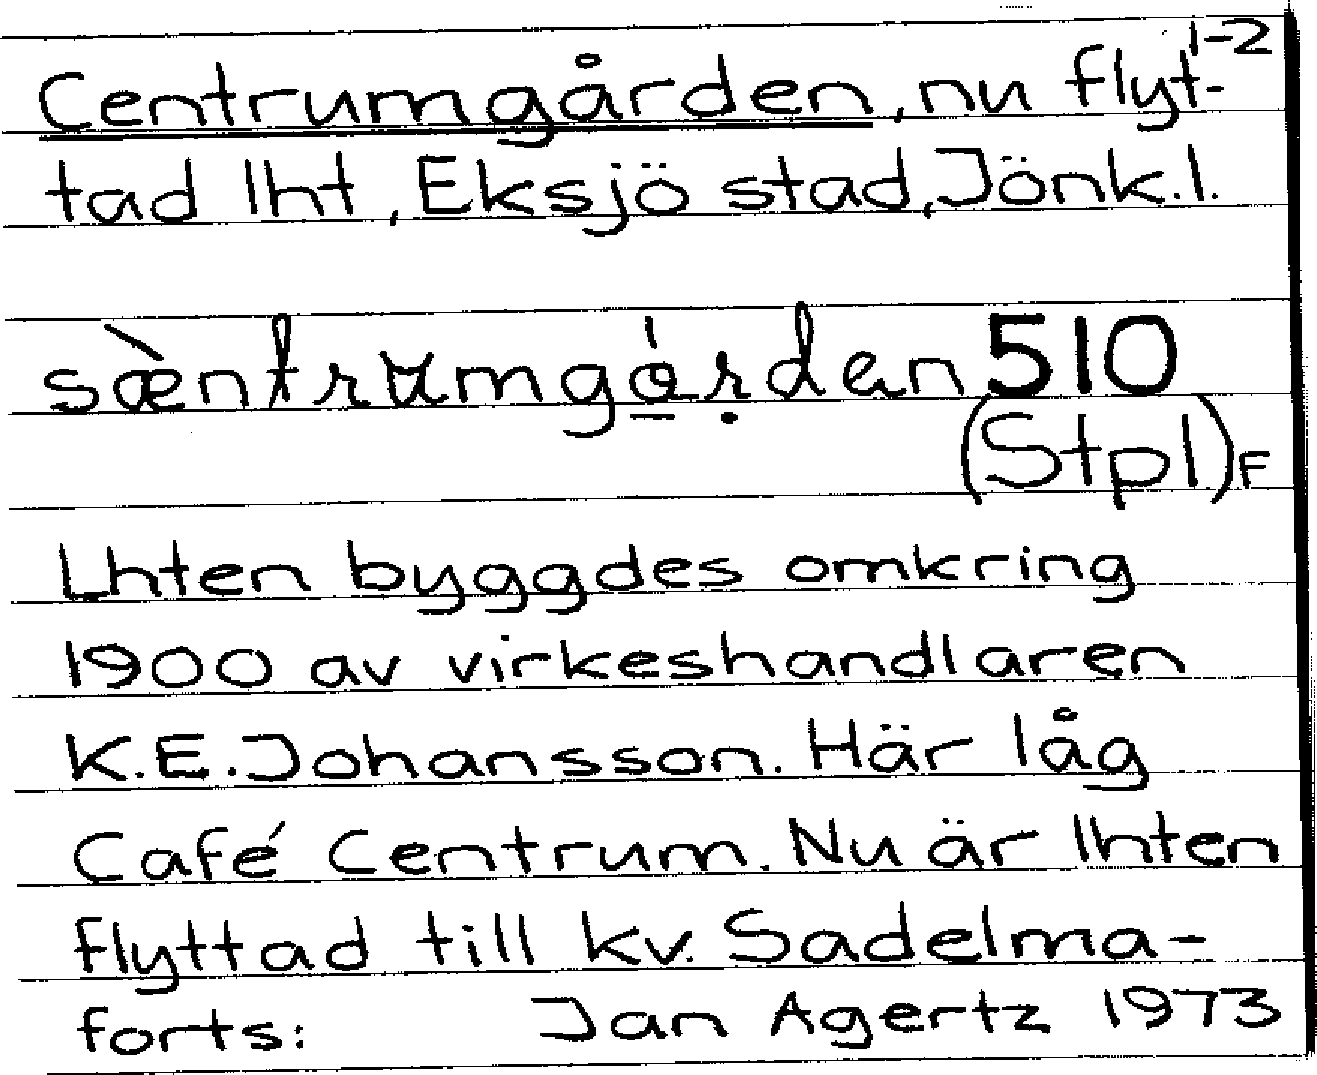 1-2
Centrumgården, nu flyt-
tad lht, Eksjö stad, Jönk.l.
sæ̀ntrumgǻrden 510
(Stpl)F
Lhten byggdes omkring
1900 av virkeshandlaren
K.E. Johansson. Här låg
Café Centrum. Nu är lhten
flyttad till kv. Sadelma-
forts: Jan Agertz 1973